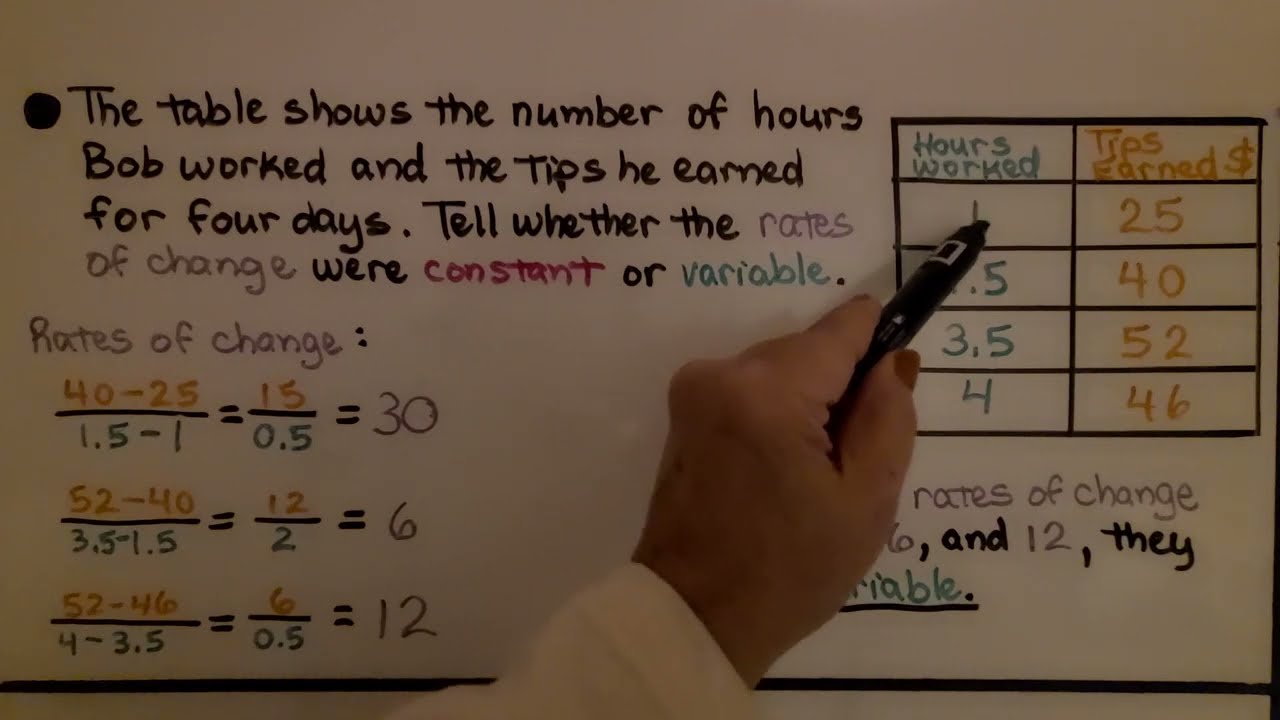 The table shows the number of hours
Bob worked and the Tips he earned
for four days. Tell whether the rates
of change were constant or variable.
Rates of change:
40-25 / 1.5-1 = 15 / 0.5 = 30
52-40 / 3.5-1.5 = 12 / 2 = 6
52-46 / 4-3.5 = 6 / 0.5 = 12
Hours worked Tips Earned $
1 25
.5 40
3.5 52
4 46
rates of change
6, and 12, they
riable.